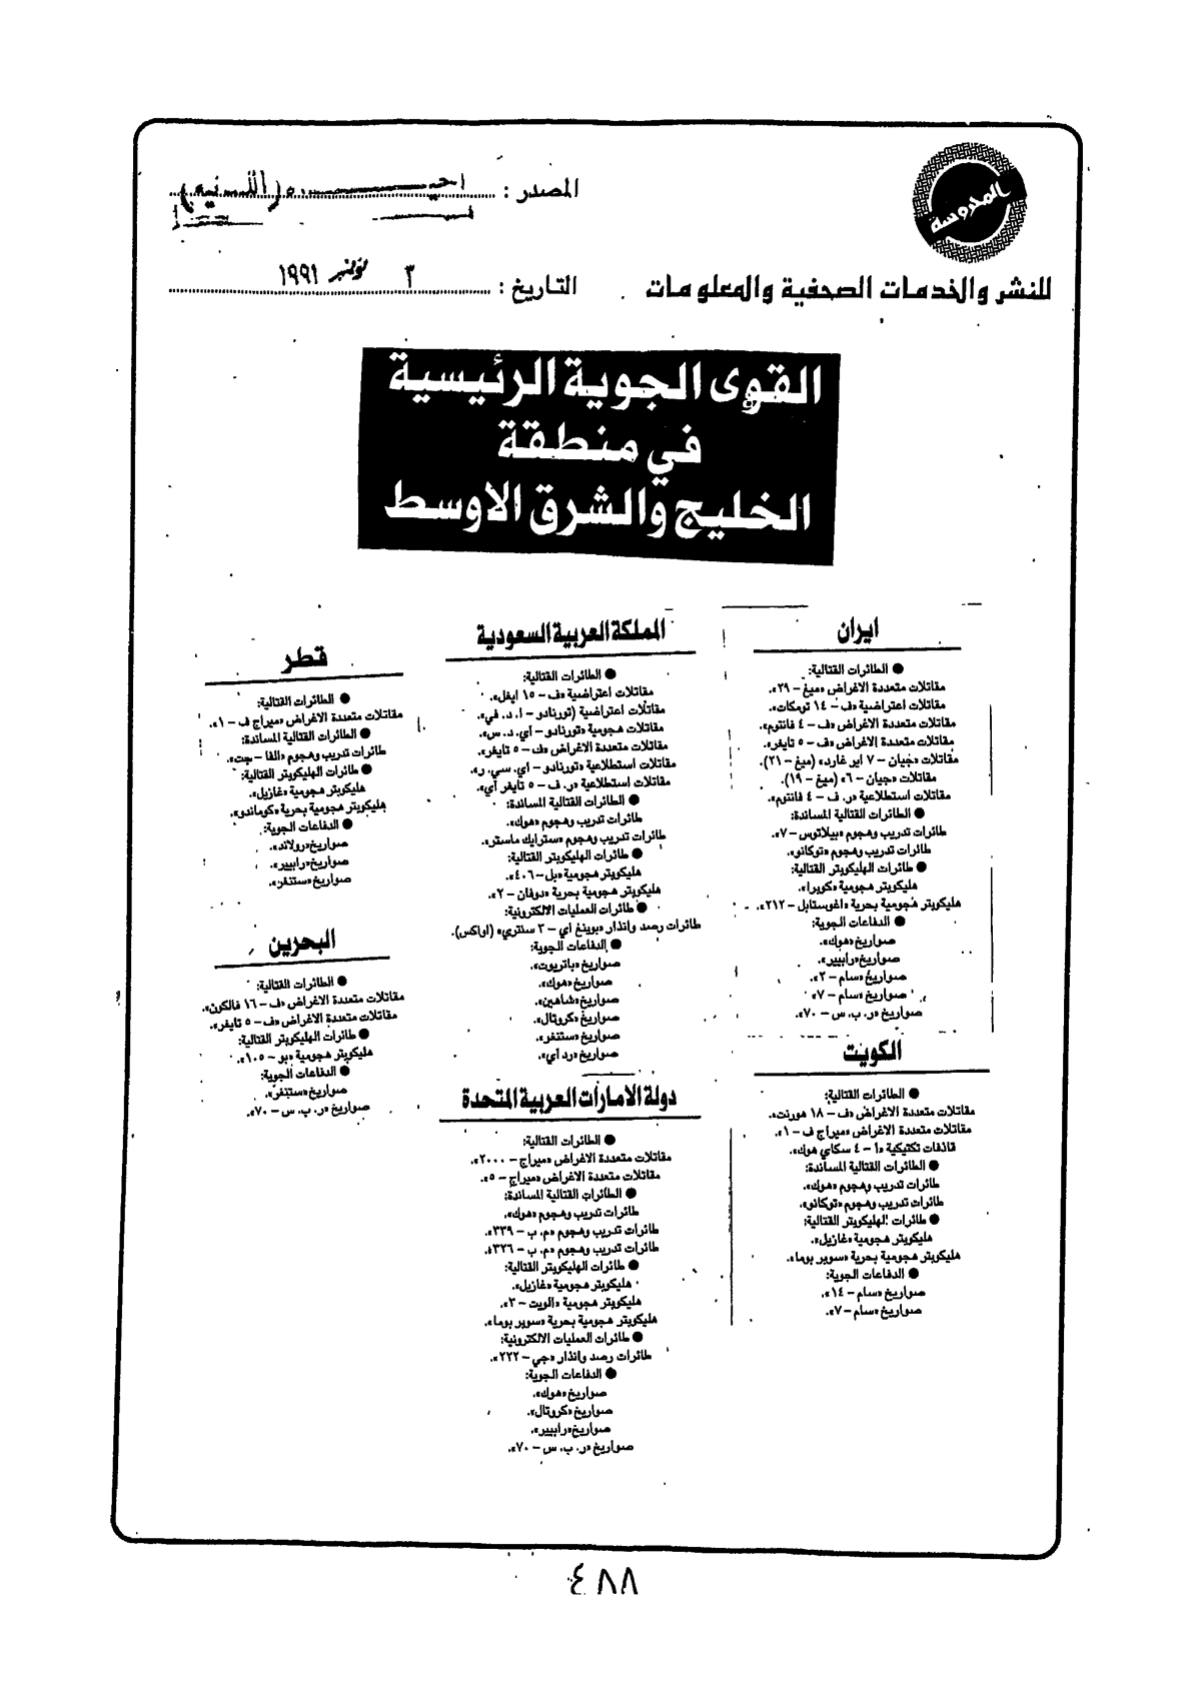 المحروسة
المصدر :
للنشر والخدمات الصحفية والمعلومات
التاريخ : ٣ نوفمبر ١٩٩١
القوى الجوية الرئيسية
في منطقة
الخليج والشرق الاوسط
ايران
● الطائرات القتالية:
مقاتلات متعددة الاغراض «ميغ – ٢٩».
مقاتلات اعتراضية «ف – ١٤ تومكات».
مقاتلات متعددة الاغراض «ف – ٤ فانتوم».
مقاتلات متعددة الاغراض «ف – ٥ تايغر».
مقاتلات «جيان – ٧ اير غارد» (ميغ – ٢١).
مقاتلات «جيان – ٦» (ميغ – ١٩).
مقاتلات استطلاعية «ر. ف – ٤ فانتوم».
● الطائرات القتالية المساندة:
طائرات تدريب وهجوم «بيلاتوس – ٧».
طائرات تدريب وهجوم «توكانو».
● طائرات الهليكوبتر القتالية:
هليكوبتر هجومية «كوبرا».
هليكوبتر هجومية بحرية «اغوستابل – ٢١٢».
● الدفاعات الجوية:
صواريخ «هوك».
صواريخ «رابيير».
صواريخ «سام – ٢».
صواريخ «سام – ٧».
صواريخ «ر. ب. س – ٧٠».
الكويت
● الطائرات القتالية:
مقاتلات متعددة الاغراض «ف – ١٨ هورنت».
مقاتلات متعددة الاغراض «ميراج ف – ١».
قاذفات تكتيكية «أ – ٤ سكاي هوك».
● الطائرات القتالية المساندة:
طائرات تدريب وهجوم «هوك».
طائرات تدريب وهجوم «توكانو».
● طائرات الهليكوبتر القتالية:
هليكوبتر هجومية «غازيل».
هليكوبتر هجومية بحرية «سوبر بوما».
● الدفاعات الجوية:
صواريخ «سام – ١٤».
صواريخ «سام – ٧».
المملكة العربية السعودية
● الطائرات القتالية:
مقاتلات اعتراضية «ف – ١٥ ايغل».
مقاتلات اعتراضية (تورنادو – ا. د. في».
مقاتلات هجومية «تورنادو – اي. د. س».
مقاتلات متعددة الاغراض «ف – ٥ تايغر».
مقاتلات استطلاعية «تورنادو – اي. سي. ر».
مقاتلات استطلاعية «ر. ف – ٥ تايغر آي».
● الطائرات القتالية المساندة:
طائرات تدريب وهجوم «هوك».
طائرات تدريب وهجوم «سترايك ماستر».
● طائرات الهليكوبتر القتالية:
هليكوبتر هجومية «بل – ٤٠٦».
هليكوبتر هجومية بحرية «دوفان – ٢».
● طائرات العمليات الالكترونية:
طائرات رصد وانذار «بوينغ اي – ٣ سنتري» (اواكس).
● الدفاعات الجوية:
صواريخ «باتريوت».
صواريخ «هوك».
صواريخ «شاهين».
صواريخ «كروتال».
صواريخ «ستنغر».
صواريخ «رد آي».
دولة الامارات العربية المتحدة
● الطائرات القتالية:
مقاتلات متعددة الاغراض «ميراج – ٢٠٠٠».
مقاتلات متعددة الاغراض «ميراج – ٥».
● الطائرات القتالية المساندة:
طائرات تدريب وهجوم «هوك».
طائرات تدريب وهجوم «م. ب – ٣٣٩».
طائرات تدريب وهجوم «م. ب – ٣٢٦».
● طائرات الهليكوبتر القتالية:
هليكوبتر هجومية «غازيل».
هليكوبتر هجومية «الويت – ٣».
هليكوبتر هجومية بحرية «سوبر بوما».
● طائرات العمليات الالكترونية:
طائرات رصد وانذار «جي – ٢٢٢».
● الدفاعات الجوية:
صواريخ «هوك».
صواريخ «كروتال».
صواريخ «رابيير».
صواريخ «ر. ب. س – ٧٠».
قطر
● الطائرات القتالية:
مقاتلات متعددة الاغراض «ميراج ف – ١».
● الطائرات القتالية المساندة:
طائرات تدريب وهجوم «الفا – جت».
● طائرات الهليكوبتر القتالية:
هليكوبتر هجومية «غازيل».
هليكوبتر هجومية بحرية «كوماندو».
● الدفاعات الجوية:
صواريخ «رولاند».
صواريخ «رابيير».
صواريخ «ستنغر».
البحرين
● الطائرات القتالية:
مقاتلات متعددة الاغراض «ف – ١٦ فالكون».
مقاتلات متعددة الاغراض «ف – ٥ تايغر».
● طائرات الهليكوبتر القتالية:
هليكوبتر هجومية «بو – ١٠٥».
● الدفاعات الجوية:
صواريخ «ستنغر».
صواريخ «ر. ب. س – ٧٠».
٤٨٨